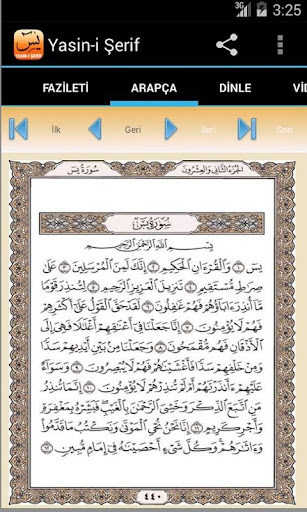 3:25
يس
YASİN-İ ŞERİF
Yasin-i Şerif
FAZİLETİ ARAPÇA DİNLE VİD
İlk Geri İleri Son
سُورَةُ يسٓ الجُزءُ الثَّانِي وَالعِشْرُونَ
سُورَةُ يسٓ
بِسْمِ اللَّهِ الرَّحْمَٰنِ الرَّحِيمِ
يسٓ ۝١ وَالْقُرْءَانِ الْحَكِيمِ ۝٢ إِنَّكَ لَمِنَ الْمُرْسَلِينَ ۝٣ عَلَىٰ
صِرَاطٍ مُّسْتَقِيمٍ ۝٤ تَنزِيلَ الْعَزِيزِ الرَّحِيمِ ۝٥ لِتُنذِرَ قَوْمًا
مَّآ أُنذِرَ ءَابَآؤُهُمْ فَهُمْ غَٰفِلُونَ ۝٦ لَقَدْ حَقَّ الْقَوْلُ عَلَىٰٓ أَكْثَرِهِمْ
فَهُمْ لَا يُؤْمِنُونَ ۝٧ إِنَّا جَعَلْنَا فِىٓ أَعْنَٰقِهِمْ أَغْلَٰلًا فَهِىَ إِلَى
الْأَذْقَانِ فَهُم مُّقْمَحُونَ ۝٨ وَجَعَلْنَا مِنۢ بَيْنِ أَيْدِيهِمْ سَدًّا
وَمِنْ خَلْفِهِمْ سَدًّا فَأَغْشَيْنَٰهُمْ فَهُمْ لَا يُبْصِرُونَ ۝٩ وَسَوَآءٌ
عَلَيْهِمْ ءَأَنذَرْتَهُمْ أَمْ لَمْ تُنذِرْهُمْ لَا يُؤْمِنُونَ ۝١٠ إِنَّمَا تُنذِرُ
مَنِ اتَّبَعَ الذِّكْرَ وَخَشِىَ الرَّحْمَٰنَ بِالْغَيْبِ فَبَشِّرْهُ بِمَغْفِرَةٍ
وَأَجْرٍ كَرِيمٍ ۝١١ إِنَّا نَحْنُ نُحْىِ الْمَوْتَىٰ وَنَكْتُبُ مَا قَدَّمُوا۟
وَءَاثَٰرَهُمْ وَكُلَّ شَىْءٍ أَحْصَيْنَٰهُ فِىٓ إِمَامٍ مُّبِينٍ ۝١٢
٤٤٠